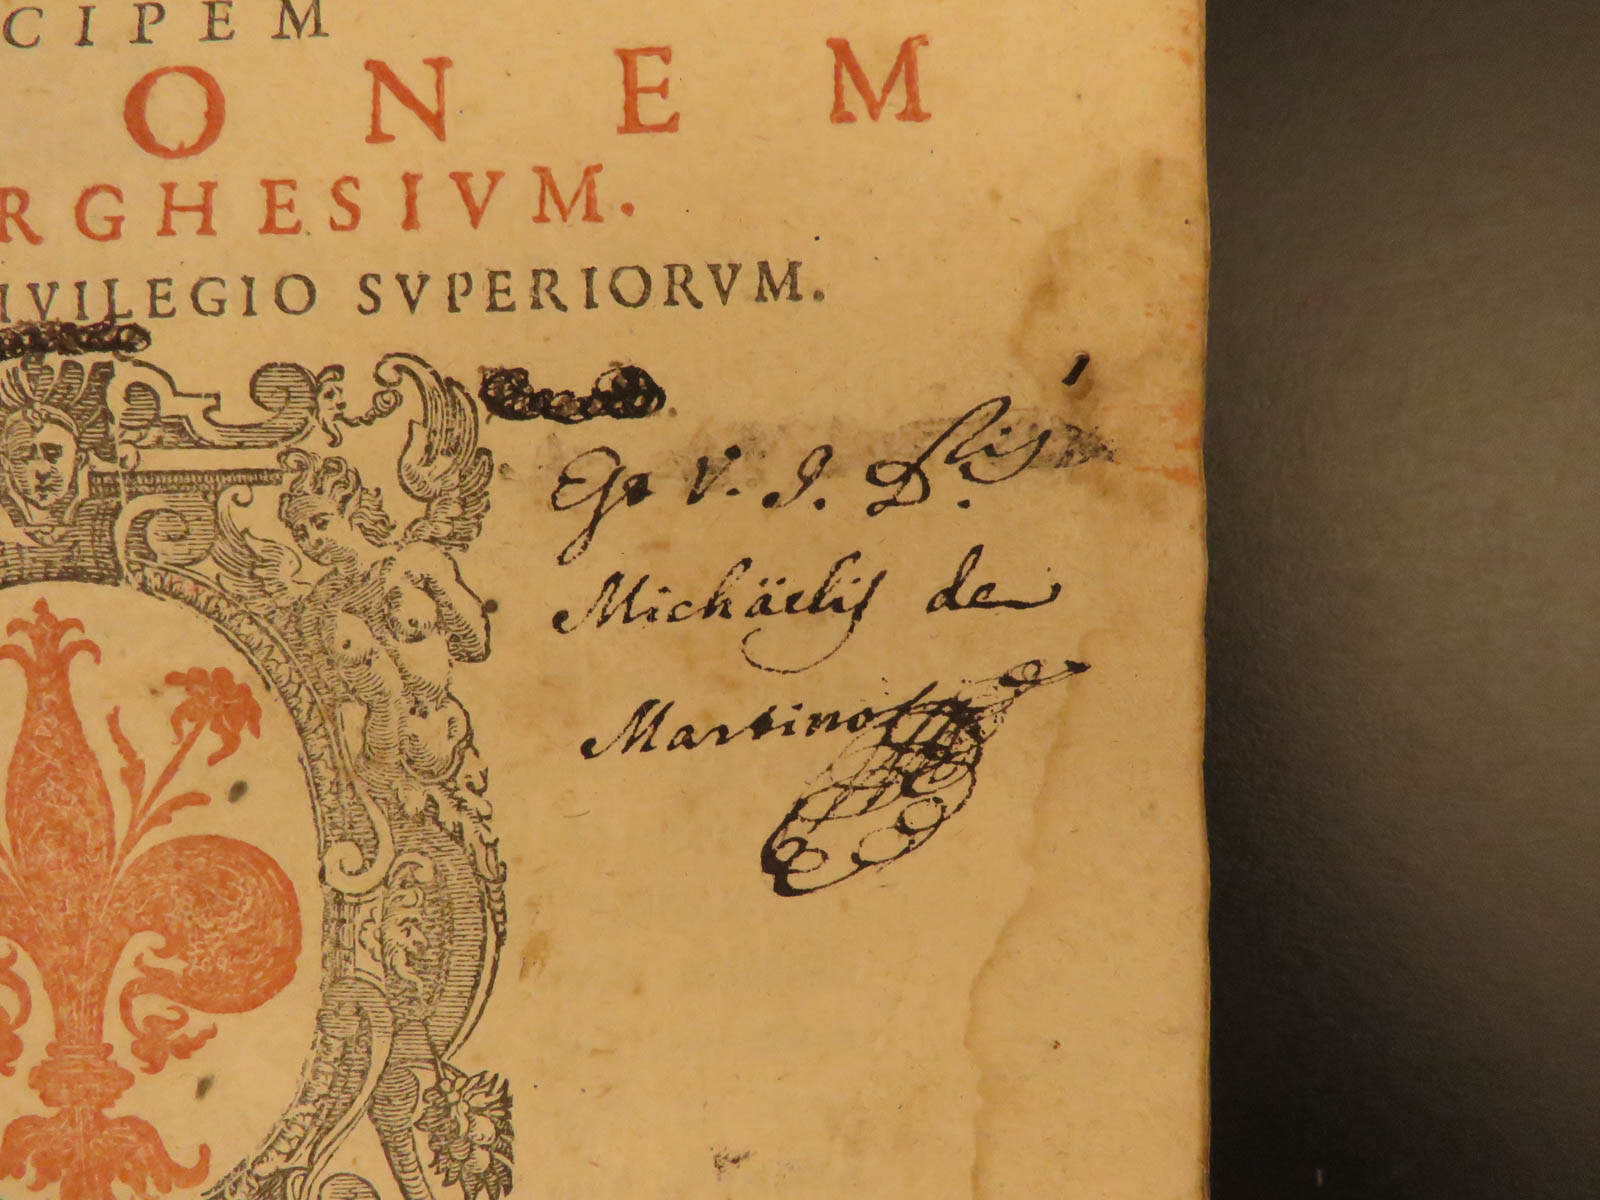 CIPEM
ONEM
RGHESIVM.
IVILEGIO SVPERIORVM.
V. J. D.ris
Michäelis de
Martinos